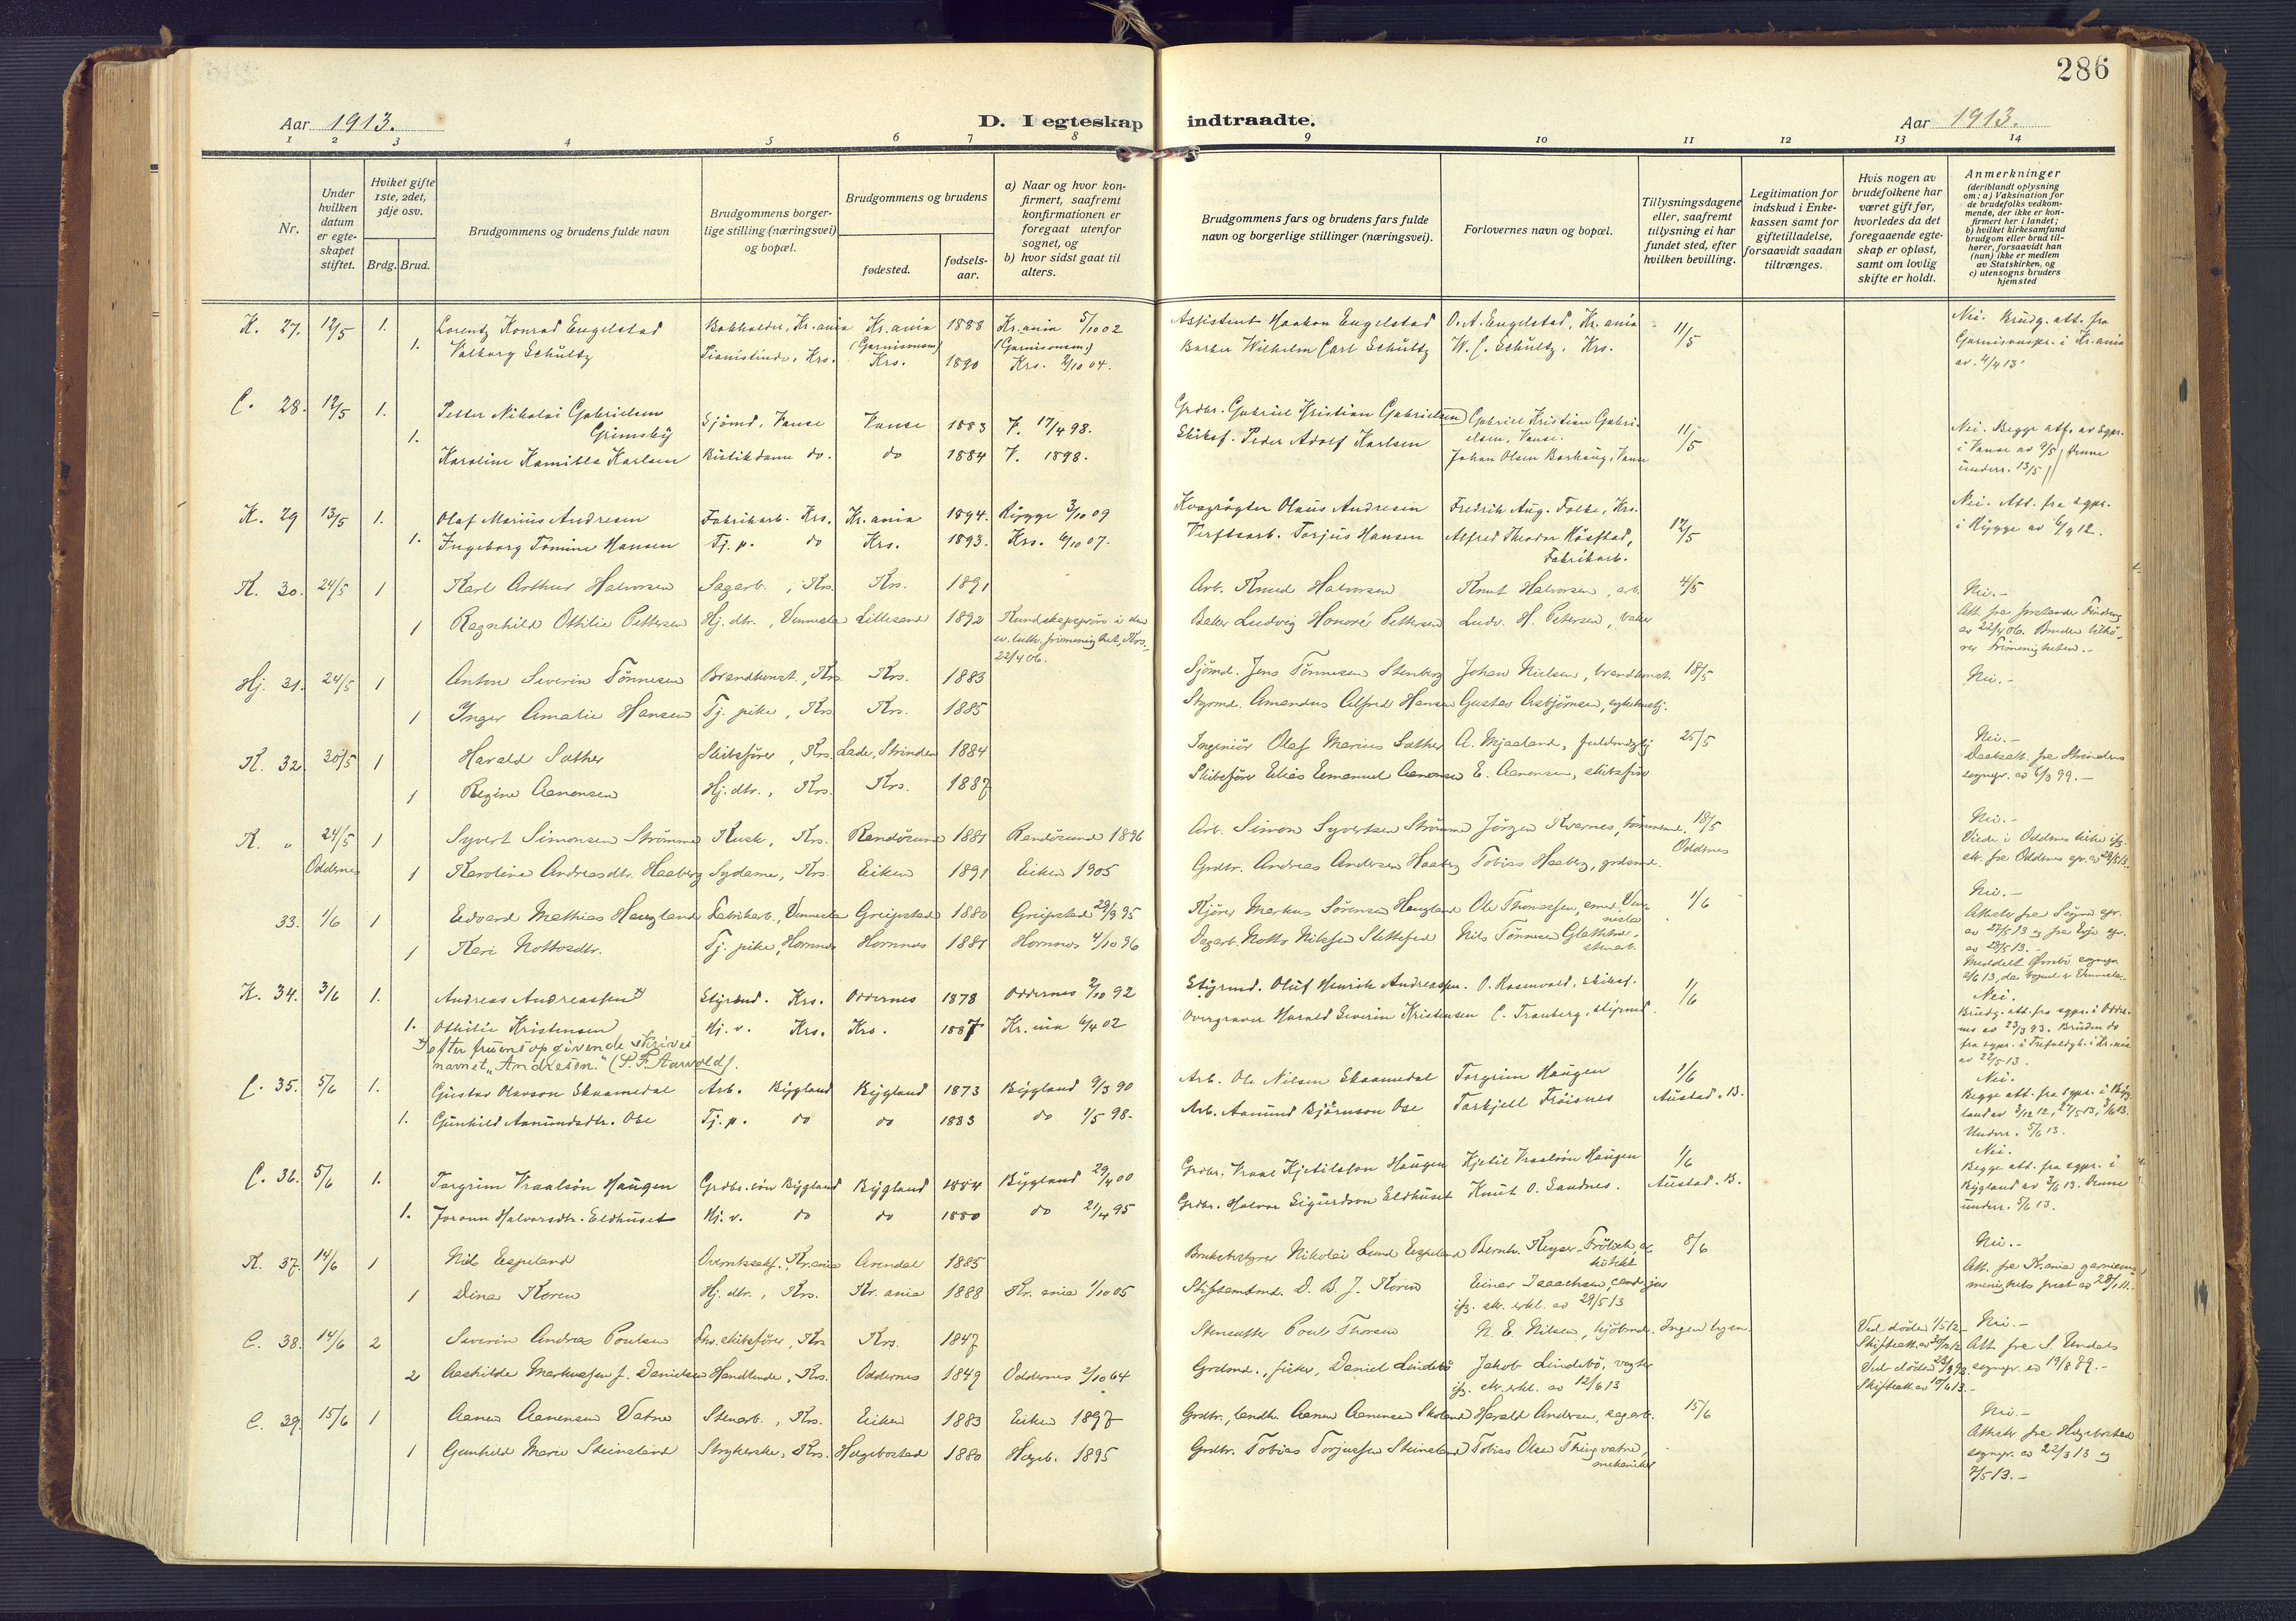 286
Aar 1913. D. I egteskap indtraadte. Aar 1913.
1 2 3 4 5 6 7 8 9 10 11 12 13 14
Nr.
Under hvilken datum er egteskapet stiftet.
Hviket gifte 1ste, 2det, 3dje osv.
Brdg. Brud.
Brudgommens og brudens fulde navn
Brudgommens borgerlige stilling (næringsvei) og bopæl.
Brudgommens og brudens
fødested.
fødselsaar.
a) Naar og hvor konfirmert, saafremt konfirmationen er foregaat utenfor sognet, og
b) hvor sidst gaat til alters.
Brudgommens fars og brudens fars fulde navn og borgerlige stillinger (næringsvei).
Forlovernes navn og bopæl.
Tillysningsdagene eller, saafremt tillysning ei har fundet sted, efter hvilken bevilling.
Legitimation for indskud i Enkekassen samt for giftetilladelse, forsaavidt saadan tiltrænges.
Hvis nogen av brudefolkene har været gift før, hvorledes da det foregaaende egteskap er opløst, samt om lovlig skifte er holdt.
Anmerkninger
(deriblandt oplysning om: a) Vaksination for de brudefolks vedkommende, der ikke er konfirmert her i landet; b) hvilket kirkesamfund brudgom eller brud tilhører, forsaavidt han (hun) ikke er medlem av Statskirken, og c) utensogns bruders hjemsted
K. 27. 12/5 1. Lorentz Konrad Engelstad Bokholder, Kr.ania Kr.ania (Garnisonsm) 1888 Kr.ania 5/10 02 (Garnisonsm.) Assistent Haakon Engelstad O. A. Engelstad, Kr.ania 11/5 Nei. Brudg. att. fra Garnisonspr. i Kr.ania av. 4/4 13.
1. Valborg Schultz Pianistinde, Krs. Krs. 1890 Krs. 2/10 04. Barber Wilhelm Carl Schultz W. C. Schultz, Krs.
C. 28. 12/5 1. Petter Nikolai Gabrielsen Grimsby Sjømd, Vanse Vanse 1883 V. 17/4 98. Grdbr. Gabriel Kristian Gabrielsen Gabriel Kristian Gabrielsen, Vanse. 11/5 Nei. Begge att. av sgpr. i Vanse av 9/5, denne underr. 13/5
1. Karoline Kamilla Karlsen Butikdame do. do 1884 V. 1898. Skibsf. Peder Adolf Karlsen Johan Olsen Borhaug, Vanse
K. 29 13/5 1. Olaf Marius Andresen Fabrikarb. Krs. Kr.ania 1894. Rygge 3/10 09 Kvægrøgter Olaus Andresen Fredrik Aug. Folke, Krs. 12/5 Nei. Att. fra sgpr. i Rygge av 6/9 12.
1. Ingeborg Tomine Hansen Tj. p. do Krs. 1893. Krs. 6/10 07. Verftsarb. Torjus Hansen Alfred Theodor Røsstad, Fabrikarb.
K. 30. 24/5 1 Karl Arthur Halvorsen Sagarb., Krs. Krs. 1891 Arb. Knud Halvorsen Knut Halvorsen, arb. 4/5 Nei.-
1 Ragnhild Othilie Pettersen Hj. dtr., Vennesla Lillesand 1892 Kundskapsprøve i den ev. luth. frimenighet, Krs. 22/4 06. Baker Ludvig Honoré Pettersen Ludv. H. Petersen, baker Att. fra forstander av 22/4 06. Bruden tilhører Frimenigheten.-
Hj. 31. 24/5 1 Anton Severin Tønnesen Brandkonst., Krs. Krs. 1883 Sjømd. Jens Tønnesen Stenberg Johan Nielsen, brandkonst. 18/5 Nei.-
1 Inger Amalie Hansen Tj. pike, Krs Krs. 1885 Styrmd. Amandus Alfred Hansen Gustav Asbjørnsen, sykehustj.
K. 32. 30/5 1 Harald Sæther Skibsfører, Krs. Lade, Strinden 1884 Ingeniør Olaf Marius Sæther A. Mjaaland, fuldmægtig 25/5 Nei.- Daabsatt. fra Strindens sognepr. av 6/3 99.-
1 Regine Aanonsen Hj. dtr., Krs. Krs. 1887 Skibsfører Elias Emanuel Aanonsen E. Aanonsen, skibsfører
K. " 24/5 Oddernes 1 Syvert Simonsen Strømme Kusk, Krs. Randøsund 1881 Randøsund 1896 Arb. Simon Syvertsen Strømme Jørgen Kvarnes, tømmermd. 18/5 Oddernes Nei.- Viede i Oddernes kirke ifg. atr. fra Oddernes spr. av 29/5 13.
1 Karoline Andreasdtr. Haaberg Sydame, Krs. Eiken 1891 Eiken 1905 Grdbr. Andreas Andersen Haaberg Tobias Haaberg, grdmd.
33. 1/6 1 Edvard Mathias Haugland Fabrikarb., Vennesla Greipstad 1880 Greipstad 29/9 95 Kjører Markus Sørensen Haugland Ole Thomassen, smed, Vennesla 1/6 Nei.- Attester fra Søgne spr. av 27/5 13 og fra Evje spr. av 28/5 13.
1 Kari Nottosdtr. Tj. pike, Hornnes Hornnes 1881 Hornnes 4/10 96 Dagarb. Notto Nilssen Slettefed Nils Tønnesen stenarb.
K. 34. 3/6 1. Andreas Andreassen x) Styrmd. Krs. Oddernes 1878 Oddernes 2/10 92 Styrmd. Oluf Henrik Andreassen. O. Rosenvold, skibsf. 1/6 Nei. Brudg. att. fra sgpr. i Oddernes av 23/3 93. Bruden do fra sgpr. i Trefoldigh. i Kr.nia av 22/5 13.
1. Othilie Kristensen Hj. v. Krs. Krs. 1887 Kr.nia 6/4 02 Overgraver Harald Severin Kristensen C. Trauberg, styrmd.
x) efter fruens opgivende skrives navnet „Andresen." (S. F. Aarvold).
C. 35. 5/6 1. Gustav Olavson Skaamedal Arb. Bygland Bygland 1873 Bygland 9/3 90 Arb. Ole Nilsen Skaamedal Torgrim Haugen 1/6 Austad. B. Nei. Begge att. fra sgpr. i Bygland av 3/12 12, 27/5 13, 3/6 13. Underr. 5/6 13.
1. Gunhild Aanundsdtr. Ose Tj. p. do do 1883 do 1/5 98. Arb. Aanund Bjørnson Ose Tarkjell Frøisnes
C. 36. 5/6 1. Torgrim Vraalson Haugen Grdbr.søn Bygland Bygland 1884 Bygland 29/4 00 Grdbr. Vraal Kjetilsson Haugen Kjetil Vraalson Haugen 1/6 Austad. B. Nei. Begge att. fra sgpr. i Bygland av 3/6 13. Denne underr. 5/6 13.
1. Jorann Halvorsdtr. Eldhuset Hj. v. do do 1880 do 21/4 95 Grdbr. Halvor Sigurdson Eldhuset Knut O. Sandnes.
K. 37. 14/6 1 Nils Espeland Overretssakf. Kr.ania Arendal 1885 Bruksbestyrer Nikolai Lund Espeland Bernh. Keyser-Frölich, arkitekt 8/6 Nei.- Att. fra Kr.ania garnisonsmenighets prest av 28/1 11.-
1 Dina Koren Hj. dtr., Krs. Kr. ania 1888 Kr. ania 1/10 05 Stiftamtmd. D. B. J. Koren Einar Isaachsen, cand. jur ifg. skr. erkl. av 29/5 13
C. 38. 14/6 2 Severin Andreas Poulsen Fhv. skibsfører, Krs Krs. 1847 Stensætter Poul Thorsen N. E. Nilsen, kjøbmd. Ingen lysn. Ved døden 1/5 12 Skifteatt. av 30/12 12. Nei.- Att. fra S. Undals sognepr. av 19/8 89.-
2 Aashilde Markussen f. Danielsen Handlende, Krs. Oddernes 1849 Oddernes 2/10 64 Grdmd., fisker, Daniel Lindebø Jakob Lindebø, vegter ifg. skr. erkl. av 12/6 13 Ved døden 23/3 93. Skifteatt. av 10/6 13.-
C. 39. 15/6 1 Aanen Aanensen Vatne Stenarb., Krs. Eiken 1883 Eiken 1897 Grdbr., landh. Aanen Aanensen Skeland Harald Andersen, sagarb. 15/6 Nei.- Attester fra Hægebostad sognepr. av 22/3 13 og 7/5 13.-
1 Gunhild Marie Steinsland Strykerske, Krs. Hægebostad 1880 Hægeb. 1895 Grdbr. Tobias Torjussen Steinsland Tobias Olsen Thingvatne, mekaniker